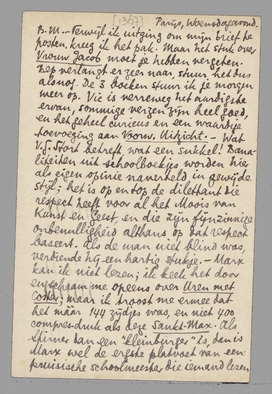 [1367] Parijs, Woensdagavond.
B.M. — Terwijl ik uitging om mijn brief te
posten, kreeg ik het pak. Maar het stuk over
Vrouw Jacob moet je hebben vergeten.
Bep verlangt er zeer naar: stuur het dus
alsnog. De 3 boeken stuur ik je morgen
weer op. Vic is verreweg het aardigste
ervan, sommige verzen zijn heel goed,
en het geheel curieus en een waardige
toevoeging aan Voorw. Uitzicht. — Wat
V.G. Noort betreft, wat een sukkel! Bana-
liteiten uit schoolboekjes worden hier
als eigen opinie vanverteld in gewijde
stijl; het is op en top de dilettant die
respect heeft voor al het Moois van
Kunst en Geest, en die zijn fijnzinnige
onbenulligheid althans op dat respect
baseert. Als de man niet blind was,
verdiende hij een hartig stukje. — Marx
kan ik niet lezen; ik keek het door
en schaamde opeens over Uren met
Coster; maar ik troost me ermee dat
het maar 144 zijdjes was, en niet 400
compres-druk als deze Sankt-Max. Als
Stirner dan een "kleinburger" is, dan is
Marx wel de ergste platvoet van een
pruisische schoolmeester die iemand lezen